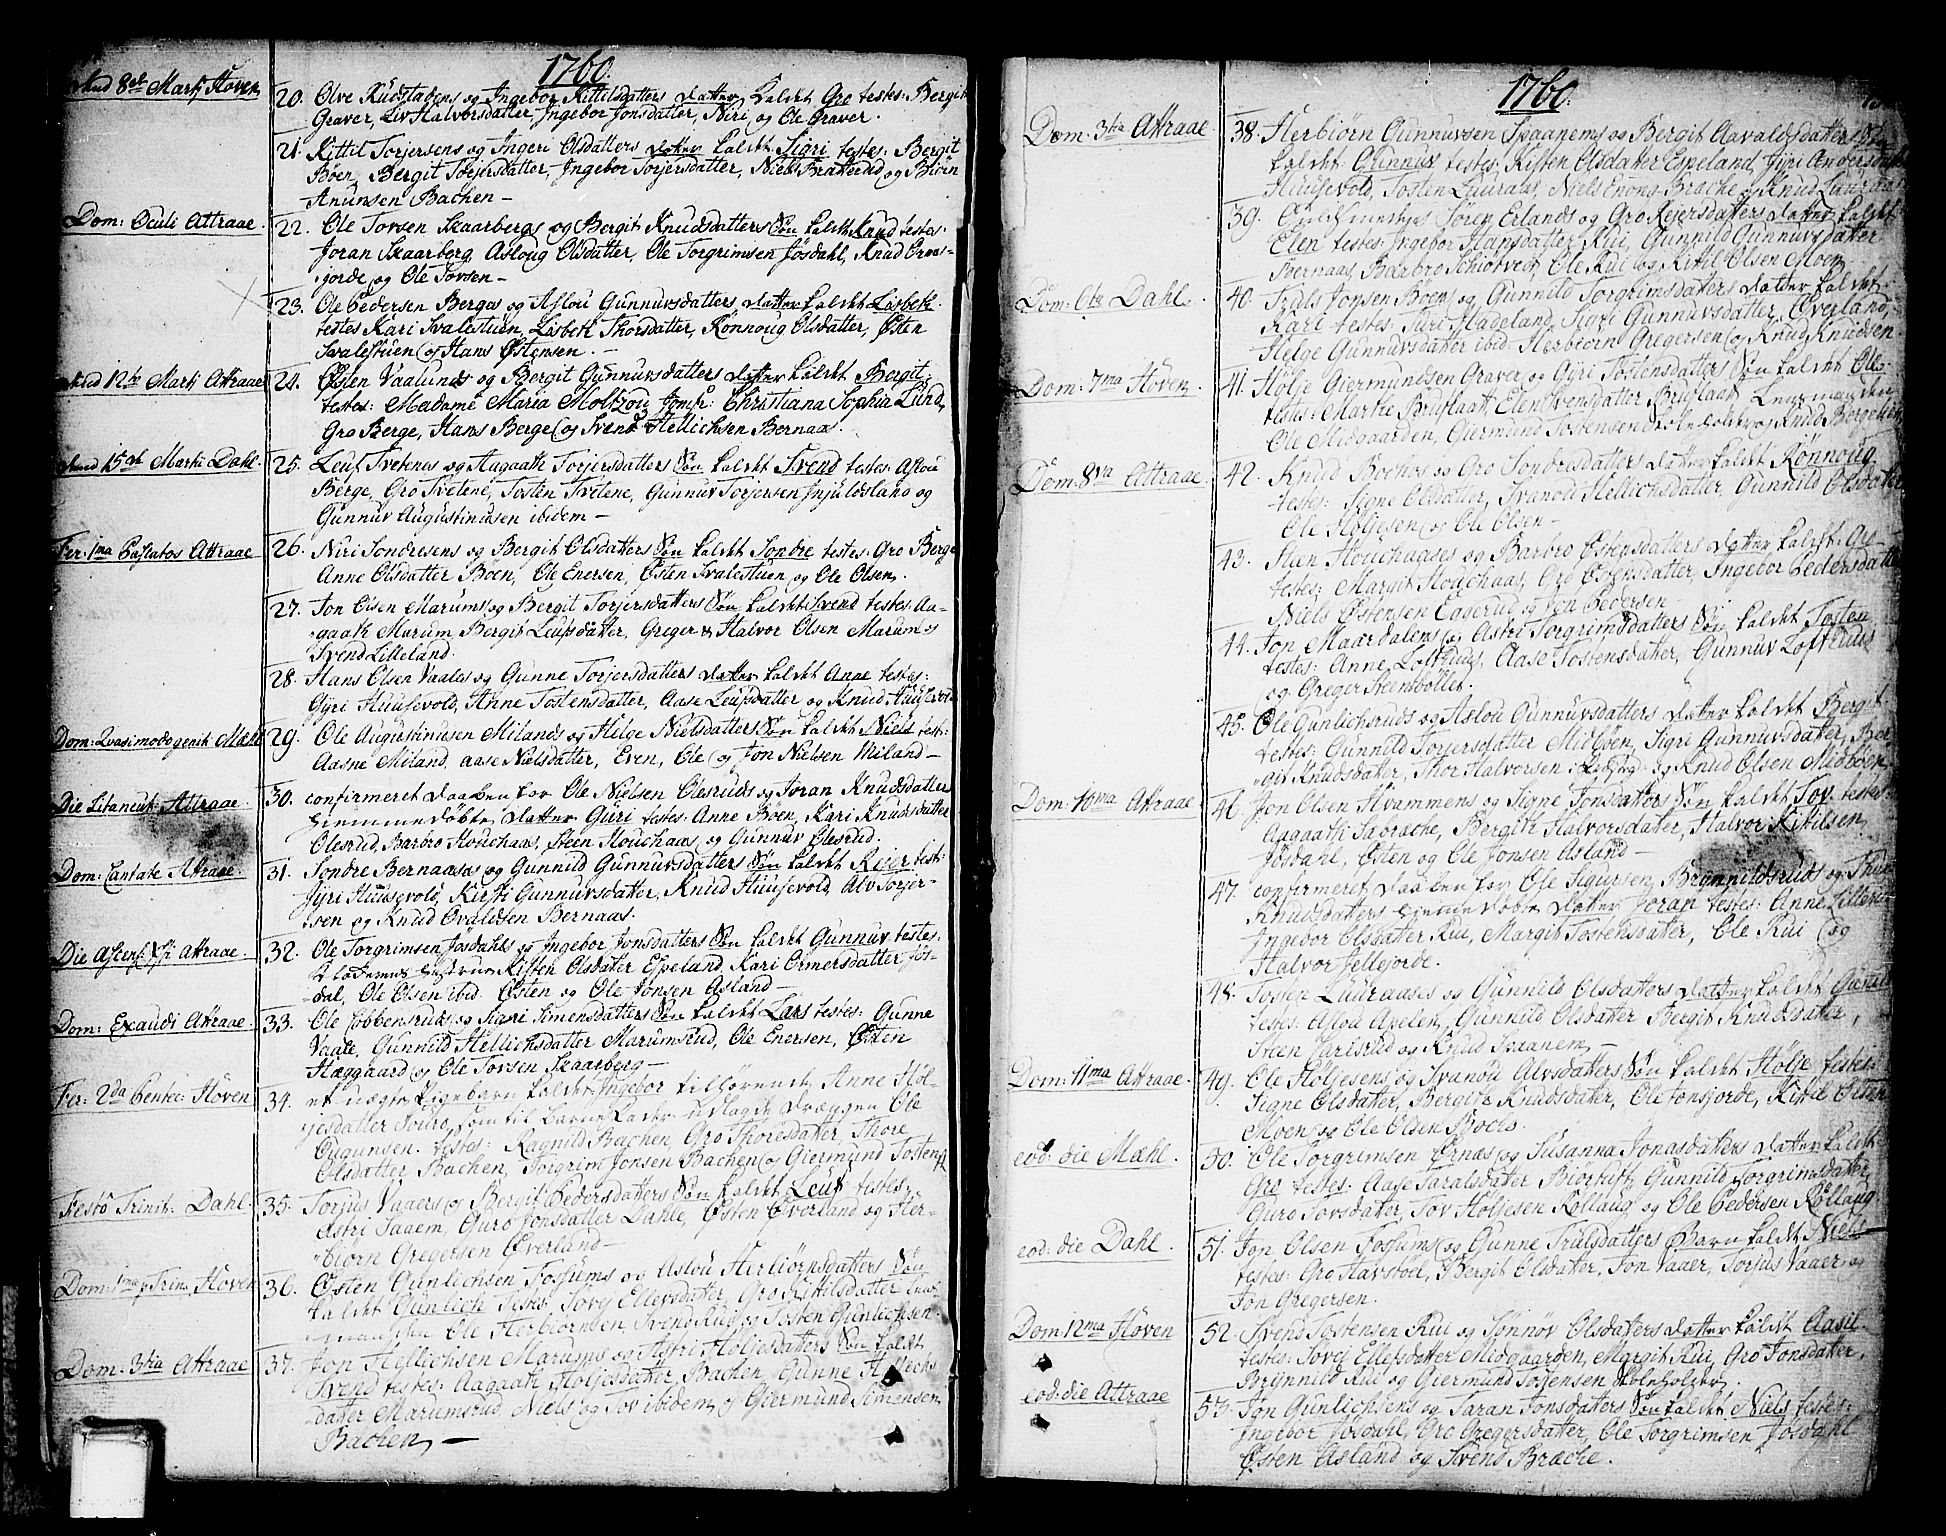 1760.
8de Martij Hoven
20. Olve Rudstadens og Ingebor Kittilsdatters datter kaldet Gro testes: Bergit
Graver, Liv Halvorsdatter, Ingebor Jonsdatter, Niri og Ole Graver.
21. Kittil Torjersens og Ingeri Olsdatters datter kaldet Sigri testes: Bergit
Böen, Bergit Torjersdatter, Ingebor Torjersdatter, Niels Bratterud og Biörn
Anunsen Bachen –
Dom: Oculi Attraae.
22. Ole Torsen Skaarbergs og Bergit Knudsdatters Sön kaldet Knud testes:
Joran Skaarberg, Asloug Olsdatter, Ole Torgrimsen Jösdahl, Knud Ernæs-
jorde og Ole Tovsen –
23. Ole Pedersen Berges og Aslou Gunnuvsdatters datter kaldet Lisbeth
testes Kari Svalestuen, Lisbeth Thorsdatter, Rönnoug Olsdatter, Østen
Svalestuen og Hans Østensen. –
12te Martij Attraae
24. Østen Vaalunds og Bergit Gunnuvsdatters datter kaldet Bergit
testes: Madame Maria Moltzou, Jomfr: Christiana Sophia Lund,
Gro Berge, Hans Berge og Svend Hellichsen Bernaas.
15de Martij Dahl.
25. Leuf Tvetenes og Aagaath Torjersdatters Sön kaldet Svend testes: Aslou
Berge, Gro Tvetene, Tosten Tvetene, Gunnuv Torjersen Injuldsland og
Gunnuv Augustinusen ibidem –
Fer: 1ma Paschatos Attraae
26. Niri Sondresens og Bergit Olsdatters Sön kaldet Sondre testes: Gro Berge
Anne Olsdatter Böen, Ole Enersen, Østen Svalestuen og Ole Olsen.
27. Jon Olsen Marums og Bergit Torjersdatters Sön kaldet Svend testes: Aa-
gaath Marum, Bergit Leufsdatter, Greger & Halvor Olsen Marum og
Svend Lilleland.
28. Hans Olsen Vaales og Gunne Torjersdatters datter kaldet Anne testes:
Gyri Huusevold, Anne Tostensdatter, Aase Leufsdatter og Knud Huusevold
Dom: Quasimodogenit: Mæhl
29. Ole Augustinusen Milands og Helge Nielsdatters Sön kaldet Niels test:
Aasne Miland, Aase Nielsdatter, Even, Ole og Jon Nielsen Miland –
Die Litaneut: Attraae.
30. confirmeret daaben for Ole Nielsen Olesruds og Joran Knudsdatters
hiemmedöbte datter Guri testes: Anne Böen, Kari Knudsdatter
Olesrud, Barbro Houchaas, Steen Houchaas og Gunnuv Olesrud.
Dom: Cantate Attraae.
31. Sondre Bernaases og Gunnild Gunnuvsdatters Sön kaldet Reier test:
Jyri Huusevold, Kirsti Gunnuvsdatter, Knud Huusevold, Alv Torjer-
sen og Knud Ovaldsen Bernaas.
Die Ascens: Xsti Attraae.
32. Ole Torgrimsen Jösdahls og Ingebor Jonsdatters Sön kaldet Gunnuv testes:
Kisten Olsdatter Espeland, Kari Ormersdatter Jös-
dal, Ole Olsen ibid. Østen og Ole Jonsen Asland –
Dom: Exaudi Attraae.
33. Ole Cobbensruds og Sigri Simensdatters Sön kaldet Lars testes: Gunne
Vaale, Gunnild Hellichsdatter Marumsrud, Ole Enersen, Østen
Hæggaard og Ole Tovsen Skaarberg –
Fer: 2da Pentec: Hoven
34. et uægte Pigebarn kaldet Ingebor tilhörende Anne Höl-
jesdatter som til Barne Fader udlagde Drængen Ole
Gregunsen. testes: Ragnild Bachen, Gro Thoresdatter, Thore
Olsdatter Bachen, Torgrim Jonsen Bachen og Giermund Tostens
Festô Trinit: Dahl.
35. Torjus Vaaers og Bergit Pedersdatters Sön kaldet Leuf testes:
Astri Saaem, Guro Jonsdatter Dahle, Østen Overland og Her-
biorn Gregersen Overland –
Dom: 1ma p: Trin: Hoven
36. Østen Gunlichsen Fossums og Aslou Herbiörnsdatters Sön
kaldet Gunlich testes: Sovej Ellevsdatter, Gro Kittilsdatter
Ole Herbiörnsen, Svend Rui og Tosten Gunlichsen.
Dom: 3tia Attraae
37. Jon Hellichsen Marums og Astri Höljesdatters Sön kaldet
Svend testes: Aagaath Höljesdatter, Bachen, Gunne Hellichs
datter Marumsrud, Niels og Tov ibidem og Giermund Simensen
Bachen –
1760.
Dom: 3tia Attraae.
38. Herbiörn Gunnuvsen Spaanems og Bergit Aavaldsdatters Sön
kaldet Gunnuv testes: Kisten Olsdatter Espeland, Jyri Andersdatter
Huusevold, Tosten Luuraas, Niels Enong, Bræche og Knud Luuraas
39. Sören Erlands og Gro Reiersdatters datter kaldet
Elen testes: Ingebor Hansdatter Rui, Gunnild Gunnuvsdatter
Bernaas, Baabro Schiötvedt, Ole Rui og Kittil Olsen Moen
Dom: 6ta Dahl.
40. Truls Jonsen Böens og Gunnild Torgrimsdatters datter kaldet
Kari testes: Turi Hadeland, Sigri Gunnuvsdatter, Overland,
Helge Gunnuvsdatter ibid. Herbiorn Gregersen og Knud Knudsen
Dom: 7ma Hoven.
41. Hölje Giermundsen Graver og Gyri Tostensdatters Sön kaldet Ole
testes: Marthe Bruflaat, Elen Evensdatter Bruflaat,
Ole Midgaarden, Giermund Tostensen Skoleholder og Knud Berge
Dom: 8va Attraae.
42. Knud Bochas og Gro Sondresdatters datter kaldet Rönnoug
testes: Signe Olsdatter, Svanou Hellichsdatter, Gunnild Olsdatter
Ole Höljesen og Ole Olsen –
43. Sten Houchaases og Barbro Østensdatters datter kaldet: Gro
testes: Margit Houchaas, Gro Østensdatter, Ingebor Pedersdatter
Niels Østensen Eagerud og Pedersen –
44. Jon Maardalens og Astri Torgrimsdatters Sön kaldet Tosten
testes: Anne Lofthuus, Aase Tostensdatter, Gunnuv Lofthuus
og Greger Steensböllet.
45. Ole Gunlichsruds og Aslou Gunnuvsdatters datter kaldet Bergit
testes: Gunnild Torjersdatter Midböen, Sigri Gunnuvsdatter, Ber-
git Knudsdatter, Thor Halvorsen og Knud Olsen Midböen
Dom: 10ma Attraae
46. Jon Olsen Hvammens og Signe Jonsdatters Sön kaldet Tov testes
Aagaath Sabræche, Bergith Halvorsdatter, Halvor Kittilsen
Jösdahl, Østen og Ole Jonsen Asland –
47. confirmeret daaben for Ole Sigursen Brynnildsruds og
Knudsdatters hiemmedöbte datter Joran testes: Anne Lillero
Ingebor Olsdatter Rui, Margit Tostensdatter, Ole Rui og
Halvor Jellejorde.
48. Tosten Luuraases og Gunnild Olsdatters datter kaldet Gunild
testes: Aslou Apelen, Gunnild Olsdatter Bergit Knudsdatter,
Steen Carlsrud og Knud Spaanem –
Dom: 11ma Attraae.
49. Ole Höljesens og Svanou Alvsdatters Sön kaldet Hölje testes:
Signe Olsdatter, Bergith Knudsdatter, Ole Tonsjorde, Kittil Olsen
Moen og Ole Olsen Bochs.
eod: die Mæhl.
50. Ole Torgrimsen Ernæs og Susanna Jonasdatters datter kaldet
Gro testes: Aase Saralsdatter Biörtuft, Gunnild Torgrimsdatter
Guro Tovsdatter, Tov Höljesen Kollaug og Ole Pedersen Kollaug.
eod: die Dahl.
51. Jon Olsen Fossums og Gunne Trulsdatters Barn kaldt Niels
testes: Gro Havstoel, Bergit Olsdatter, Jon Vaaer, Torjus Vaaer og
Jon Gregersen.
Dom: 12ma Hoven
52. Svend Tostensen Rui og Sönnöv Olsdatters datter kaldet Aasil
testes: Sovej Ellefsdatter Midgaarden, Margit Rui, Gro Jonsdatter,
Brynnild Rui og Giermund Torjensen Skoleholder.
eod: die Attraae
53. Jon Gunlichsens og Taran Jonsdatters Sön kaldet Niels testes:
Ingebor Jösdahl, Gro Gregersdatter, Ole Torgrimsen Jösdahl
Østen Asland og Svend Bræche.